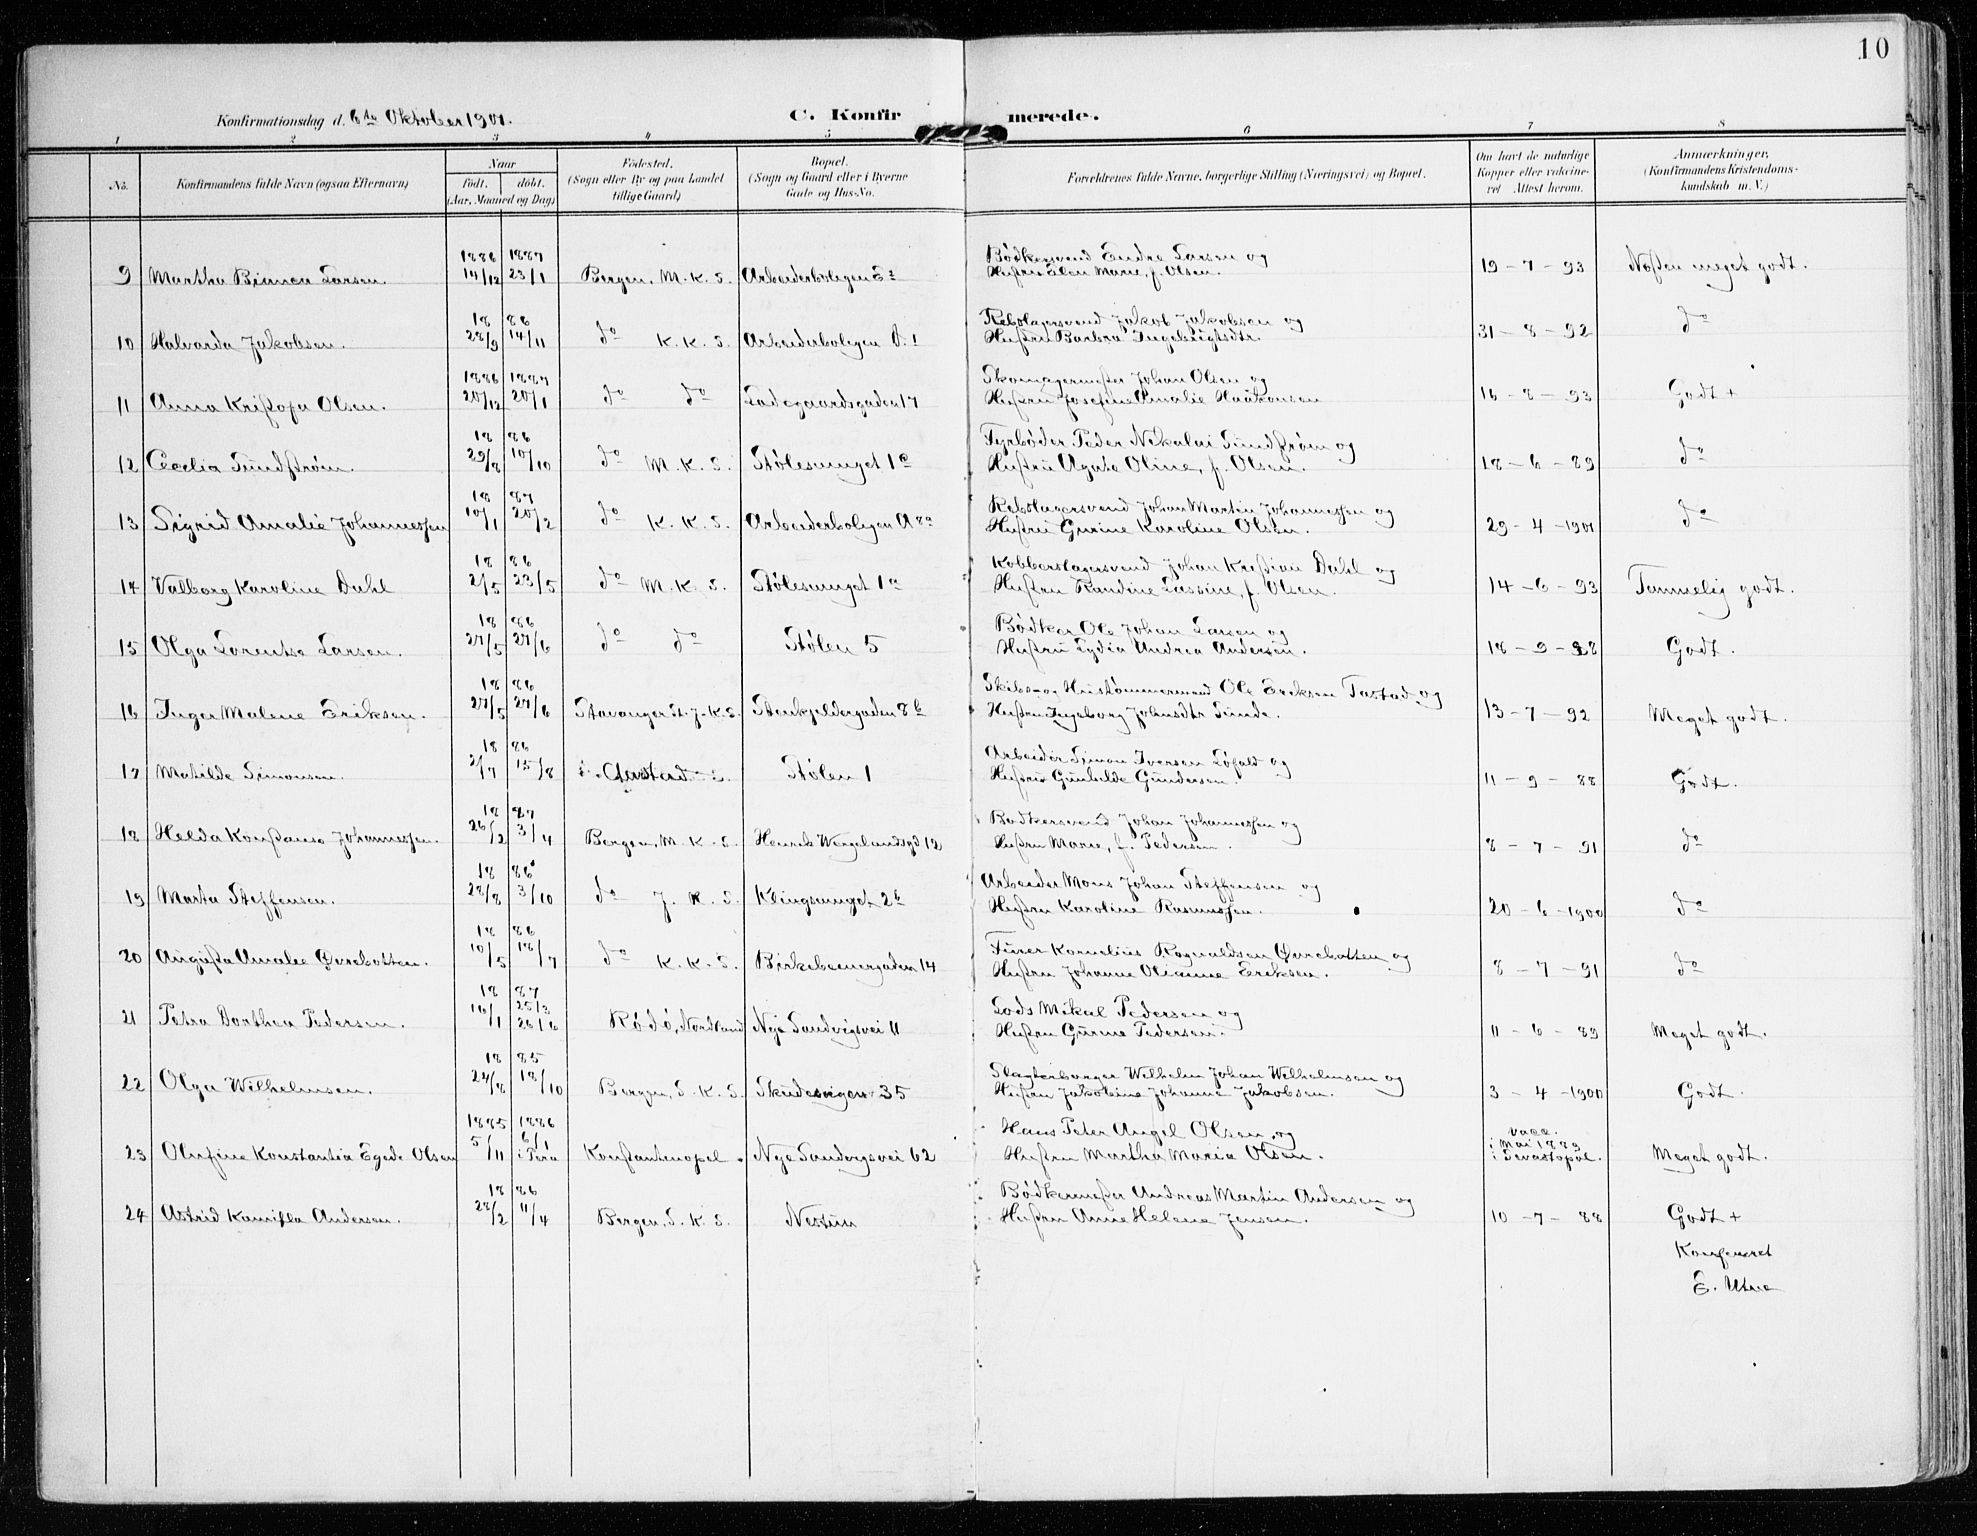 10
Konfirmationsdag d. 6te Oktober 1901.
C. Konfirmerede.
1 2 3 4 5 6 7 8
No. Konfirmandens fulde Navn (ogsaa Efternavn) Naar født. døbt. (Aar, Maaned og Dag) Fødested. (Sogn eller By og paa Landet tillige Gaard) Bopæl. (Sogn og Gaard eller i Byerne Gade og Hus-No. Forældrenes fulde Navne, borgerlige Stilling (Næringsvei) og Bopæl. Om havt de naturlige Kopper eller vaksineret Attest herom. Anmærkninger. (Konfirmandens Kristendomskundskab m. V.)
1886 1887 Bødkersvend Endre Larsen og
9 Martha Bianca Larsen. 14/12 23/1 Bergen, M. K. S. Arbeiderboligen Hustru Elen Marie, f. Olsen. 19-7-93 Nosten meget godt.
18 86 Rebslagersvend Jakob Jakobsen og
10 Halvarda Jakobsen. 28/9 14/11 do K. K. S. Arbeiderboligen Hustru Barbra Ingebrigtsdtr. 31-8-92 do
1886 1887 Skomagermester Johan Olsen og
11 Anna Kristofa Olsen. 20/12 20/1 do do Ladegaardsgaden 17 Hustru Josefine Amalie Haakonsen 16-8-93 Godt +
18 86 Fyrbøder Peder Nikolai Sundstrøm og
12 Cecelia Sundstrøm. 29/8 10/10 do M. K. S. Stølesmuget 1a Hustru Agate Oline, f. Olsen. 18-6-89 do
18 87 Rebslagersvend Johan Martin Johannessen og
13 Sigrid Amalie Johannessen 10/1 20/2 do K. K. S. Arbeiderboligen A Hustru Gurine Karoline Olsen. 29-4-1901 do
18 86 Kobberslagersvend Johan Kristian Dahl og
14 Valborg Karoline Dahl 2/5 23/5 do M. K. S. Stølesmuget 1a Hustru Randine Lassine, f. Olsen. 14-6-93 Temmelig godt.
18 86 Bødker Ole Johan Larsen og
15 Olga Lorentse Larsen. 27/5 27/6 do do Stølen 5 Hustru Lydia Andrea Andersen. 18-9-88 Godt.
18 86 Skibs- og Hustømmermand Ole Eriksen Tastad og
16 Inger Malene Eriksen. 27/5 27/6 Stavanger St. J. K. S. Stenkjeldergaden 8b Hustru Ingeborg Johnsdtr Sunde. 13-7-92 Meget godt.
18 86 Arbeider Simon Iversen Løfald og
17 Matilde Simonsen. 2/7 15/8 Stølen 1 Hustru Gunhilde Gundersen. 11-9-88 Godt.
18 87 Bødkersvend Johan Johannessen og
18 Helda Konstanse Johannessen. 26/2 3/4 Bergen, M. K. S. Henrik Wergelandsgd 12 Hustru Marie, f. Pedersen. 8-7-91 do
18 86 Arbeider Mons Johan Steffensen og
19 Marta Steffensen. 28/8 3/10 do J. K. S. Klingsmuget 2b Hustru Karoline Rasmussen. 20-6-1900 do
18 86 Furer Kornelius Rognaldsen Øvrebotten og
20 Augusta Amalie Øvrebotten. 10/5 18/7 do K. K. S. Birkebeinergaden 14 Hustru Johanne Olianne Eriksen. 8-7-91 do
18 87 25/3 Lods Mikal Pedersen og
21 Petra Dorthea Pedersen. 16/1 26/6 Rødø, Nordland Nye Sandvigsvei 11 Hustru Gurine Pedersen. 11-6-89 Meget godt.
18 85 Slagterborger Wilhelm Johan Wilhelmsen og
22 Olga Wilhelmsen. 24/8 18/10 Bergen, S. K. S. Skudevigen 35 Hustru Jakobine Johanne Jakobsen. 3-4-1900 Godt.
1885 1886 Hans Peter Angel Olsen og vacc.
23 Olufine Konstantia Egede Olsen 5/11 6/1 i Pera Konstantinopel. Nye Sandvigsvei 62 Hustru Martha Maria Olsen. i Mai 1889 i Sevastopol. Meget godt.
18 86 Bødkermester Andreas Martin Andersen og
24 Astrid Kamilla Andersen. 28/2 11/4 Bergen, S. K. S. Nestun Hustru Anne Helene Jensen. 10-7-88 Godt +
Konfereret
E. Utne